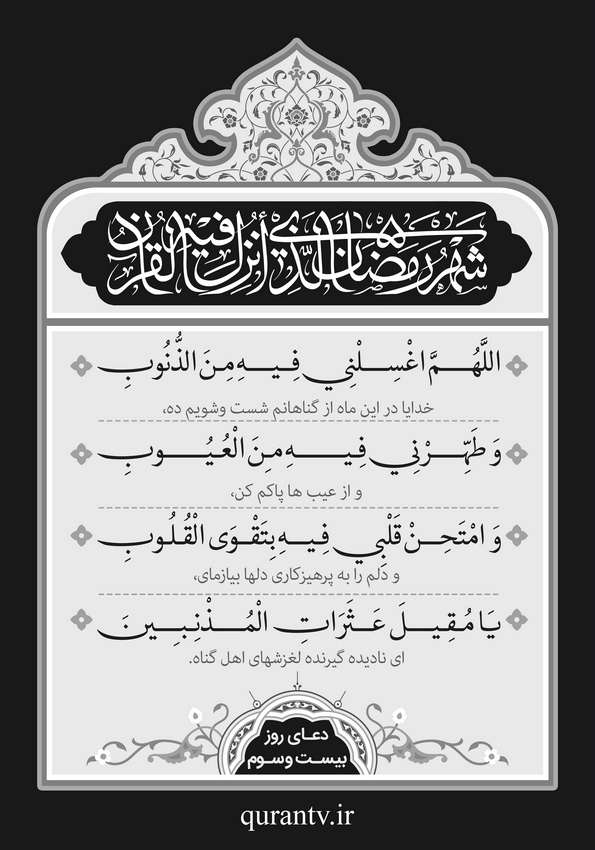 شَهْرُ رَمَضَانَ الَّذِي أُنْزِلَ فِيهِ الْقُرْآنُ
اللَّهُمَّ اغْسِلْنِي فِيهِ مِنَ الذُّنُوبِ
خدایا در این ماه از گناهانم شست وشویم ده،
وَ طَهِّرْنِي فِيهِ مِنَ الْعُيُوبِ
و از عیب ها پاکم کن،
وَ امْتَحِنْ قَلْبِي فِيهِ بِتَقْوَى الْقُلُوبِ
و دلم را به پرهیزکاری دلها بیازمای،
يَا مُقِيلَ عَثَرَاتِ الْمُذْنِبِينَ
ای نادیده گیرنده لغزشهای اهل گناه.
دعای روز
بیست وسوم
qurantv.ir